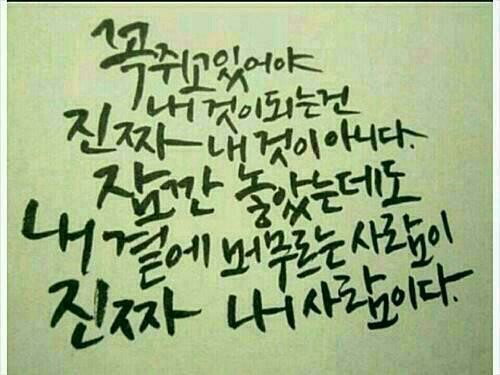 꼭 쥐고 있어야
내 것이 되는 건
진짜 내 것이 아니다.
잠깐 놓았는데도
내 곁에 머무르는 사람이
진짜 내 사람이다.